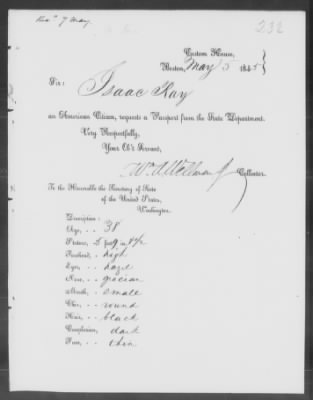 Rec'd 7 May
232
Custom House,
Boston, May 5 1845
Sir:
Isaac Ray
an American Citizen, requests a Passport from the State Department.
Very Respectfully,
Your Ob't Servant,
Wm. A. Wellman Jr Collector.
To the Honorable the Secretary of State
of the United States,
Washington.
Description:
Age, - - 38
Stature, 5 feet 9 in 1/2
Forehead, - high
Eyes, - - hazel
Nose, - - grecian
Mouth, - small
Chin, - - round
Hair, - - black
Complexion, dark
Face, - - thin